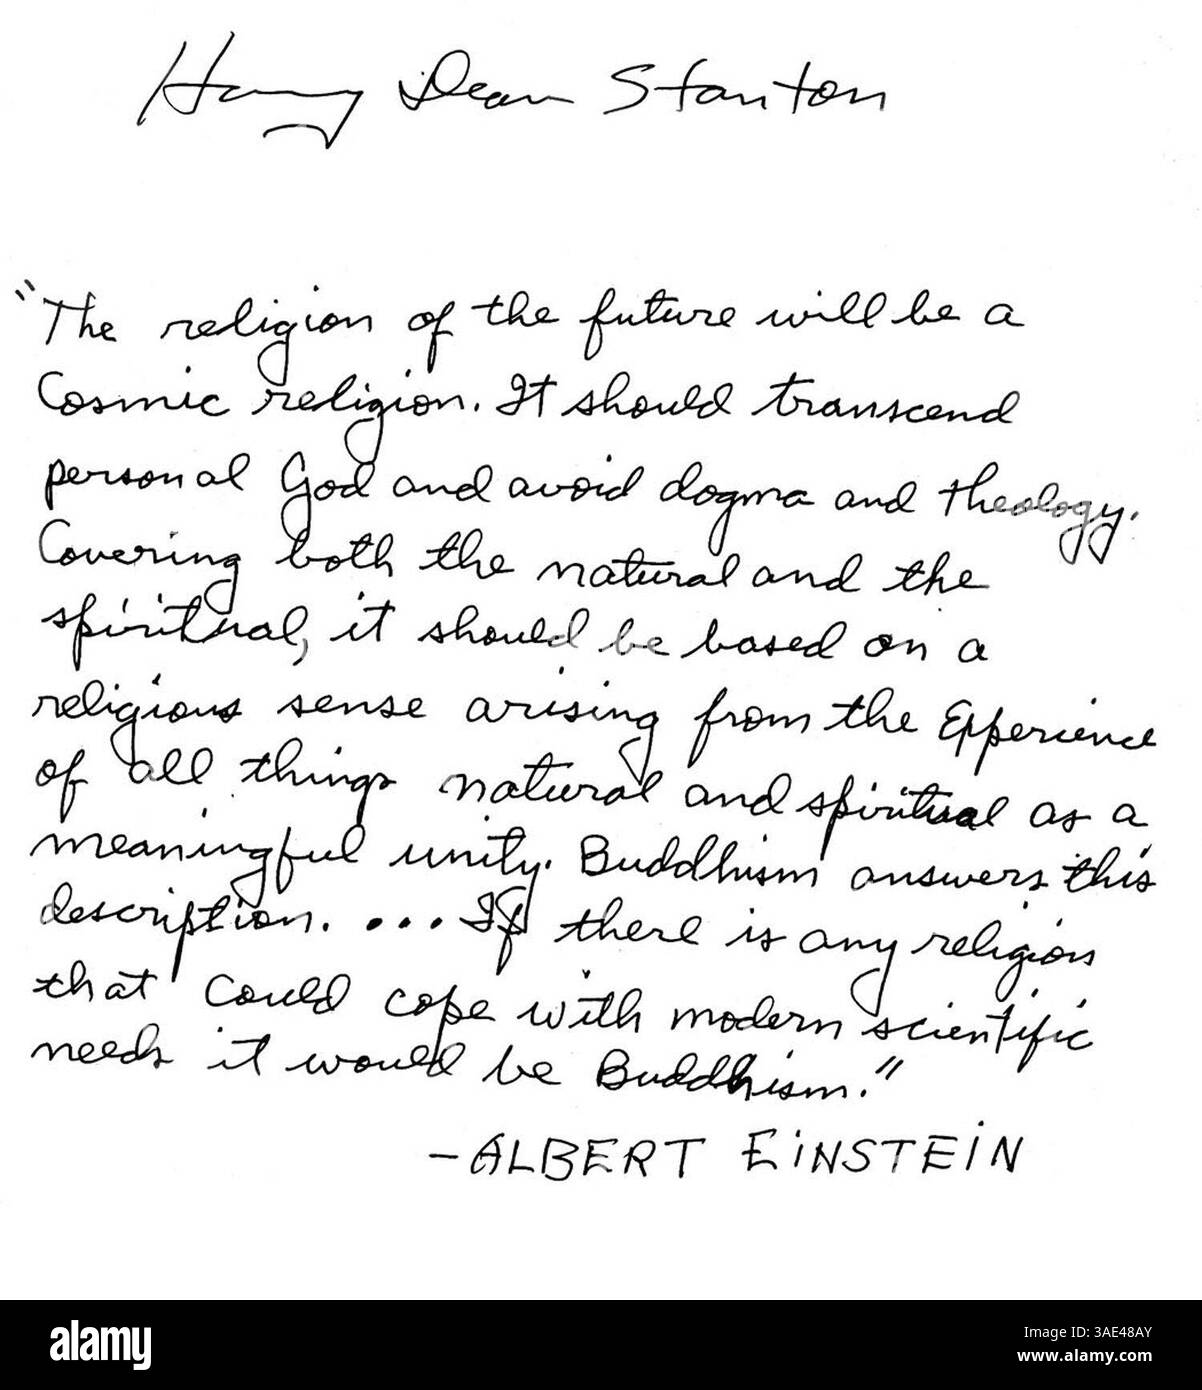 Harry Dean Stanton
"The religion of the future will be a
Cosmic religion. It should transcend
personal God and avoid dogma and theology.
Covering both the natural and the
spiritual, it should be based on a
religious sense arising from the Experience
of all things natural and spiritual as a
meaningful unity. Buddhism answers this
description. ... If there is any religion
that could cope with modern scientific
needs it would be Buddhism."
- ALBERT EINSTEIN
alamy
Image ID: 3AE48AY
www.alamy.com